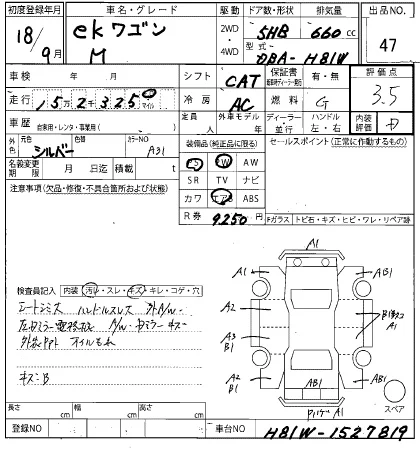 初度登録年月 車名・グレード 駆動 ドア数・形状 排気量 出品NO
18/9月 ekワゴン M 2WD 4WD 5HB 660cc 47
型式 DBA-H81W
車検 年 月 シフト CAT 保証書 有・無 評価点
走行 15万2千325 マイル 冷房 AC 燃料 G 3.5
車歴 自家用・レンタ・事業用( ) 定員 人 外車モデル 年 ディーラー・並行 ハンドル 左・右 内装評価 D
外色 元色 シルバー 色替 カラーNO A31 装備品(純正品に限る) セールスポイント(正常に作動するもの)
名義変更期限 月 日迄 積載 t PS PW AW
注意事項(欠品・修復・不具合箇所および状態) SR TV ナビ
カワ エアB ABS
R券 9250 Fガラス トビ石・キズ・ヒビ・ワレ・リペア跡
A1
A1 AB1
検査員記入 内装 汚れ・スレ・キズ・キレ・コゲ・穴
シートシミス ハンドルスレス
A2
A3 B1
外装 オイルもれ
A2 B1 AB1 AB1
キズ:B
A1
スペア
長さ cm 幅 cm 高さ cm
登録NO 車台NO H81W-1527819